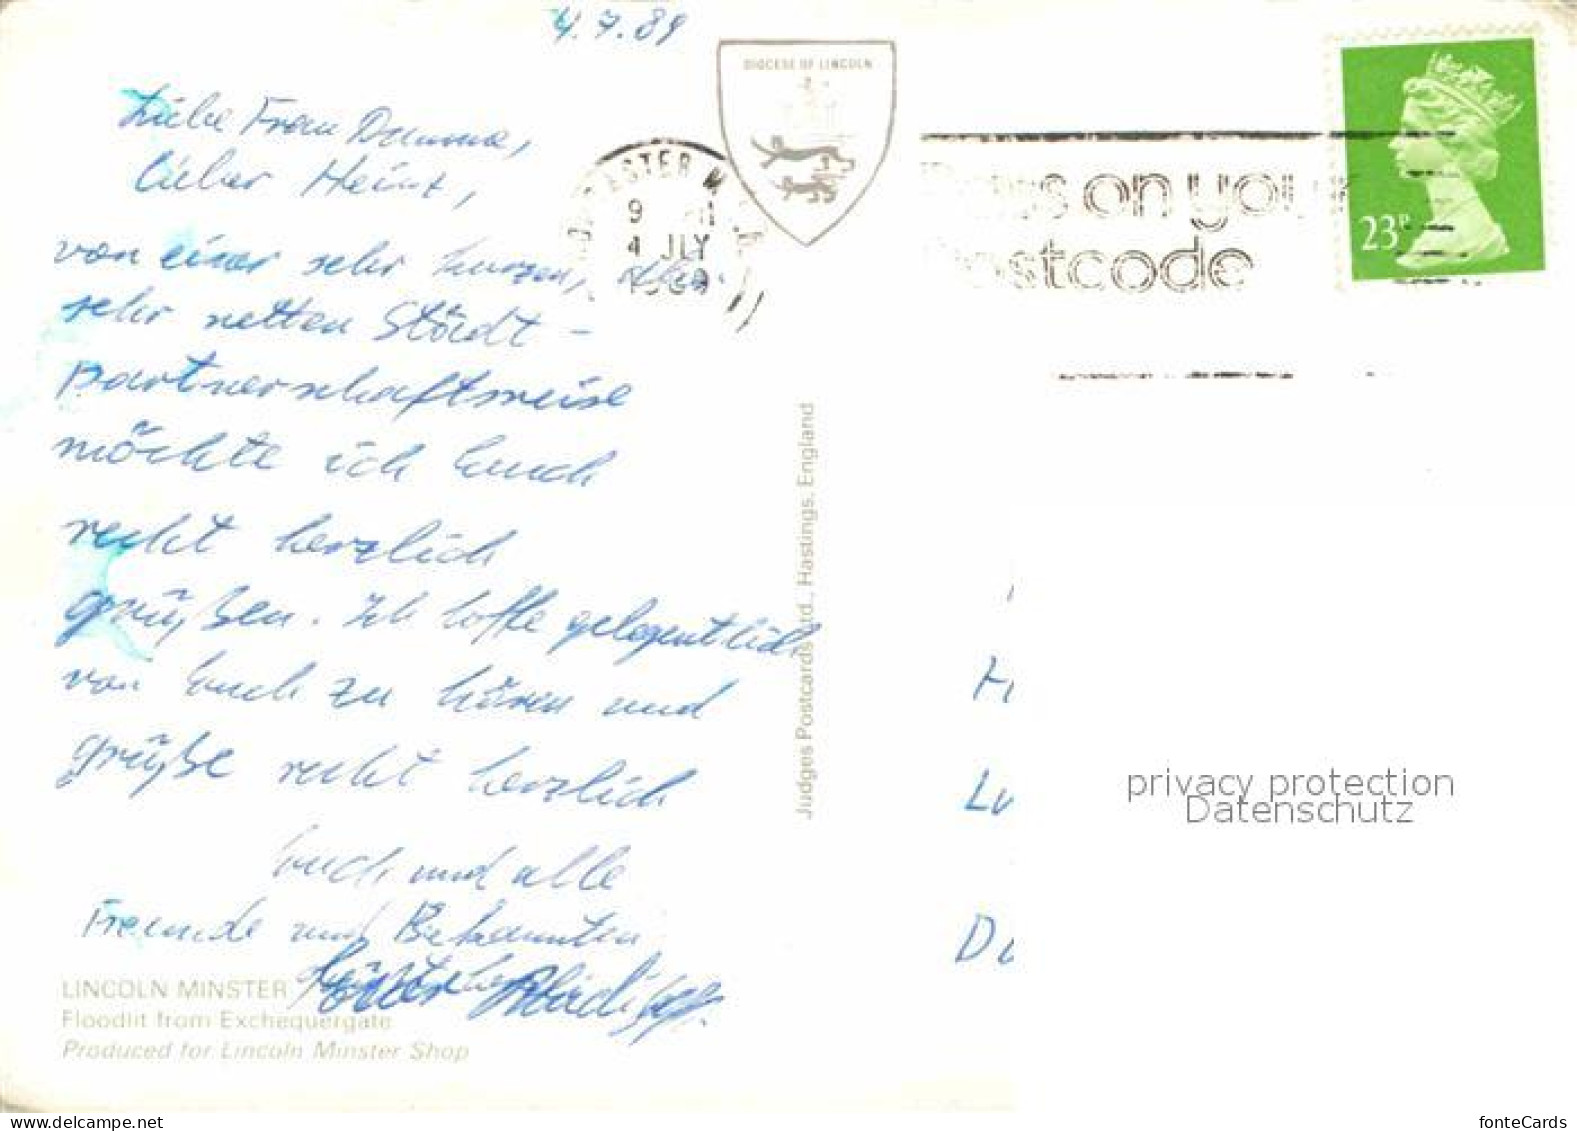 4.7.89
DIOCESE OF LINCOLN
Liebe Frau Damme,
lieber Heinz,
9
4 JLY
Pass on your
postcode
23P
von einer sehr kurzen, aber
sehr netten Städt-
partnerschaftsreise
möchte ich Euch
recht herzlich
grüßen. Ich hoffe gelegentlich
von Euch zu hören und
grüße recht herzlich
Euch und alle
Freunde und Bekannten
LINCOLN MINSTER
Floodlit from Exchequergate
Produced for Lincoln Minster Shop
Judges Postcards Ltd., Hastings, England
privacy protection
Datenschutz
fonteCards